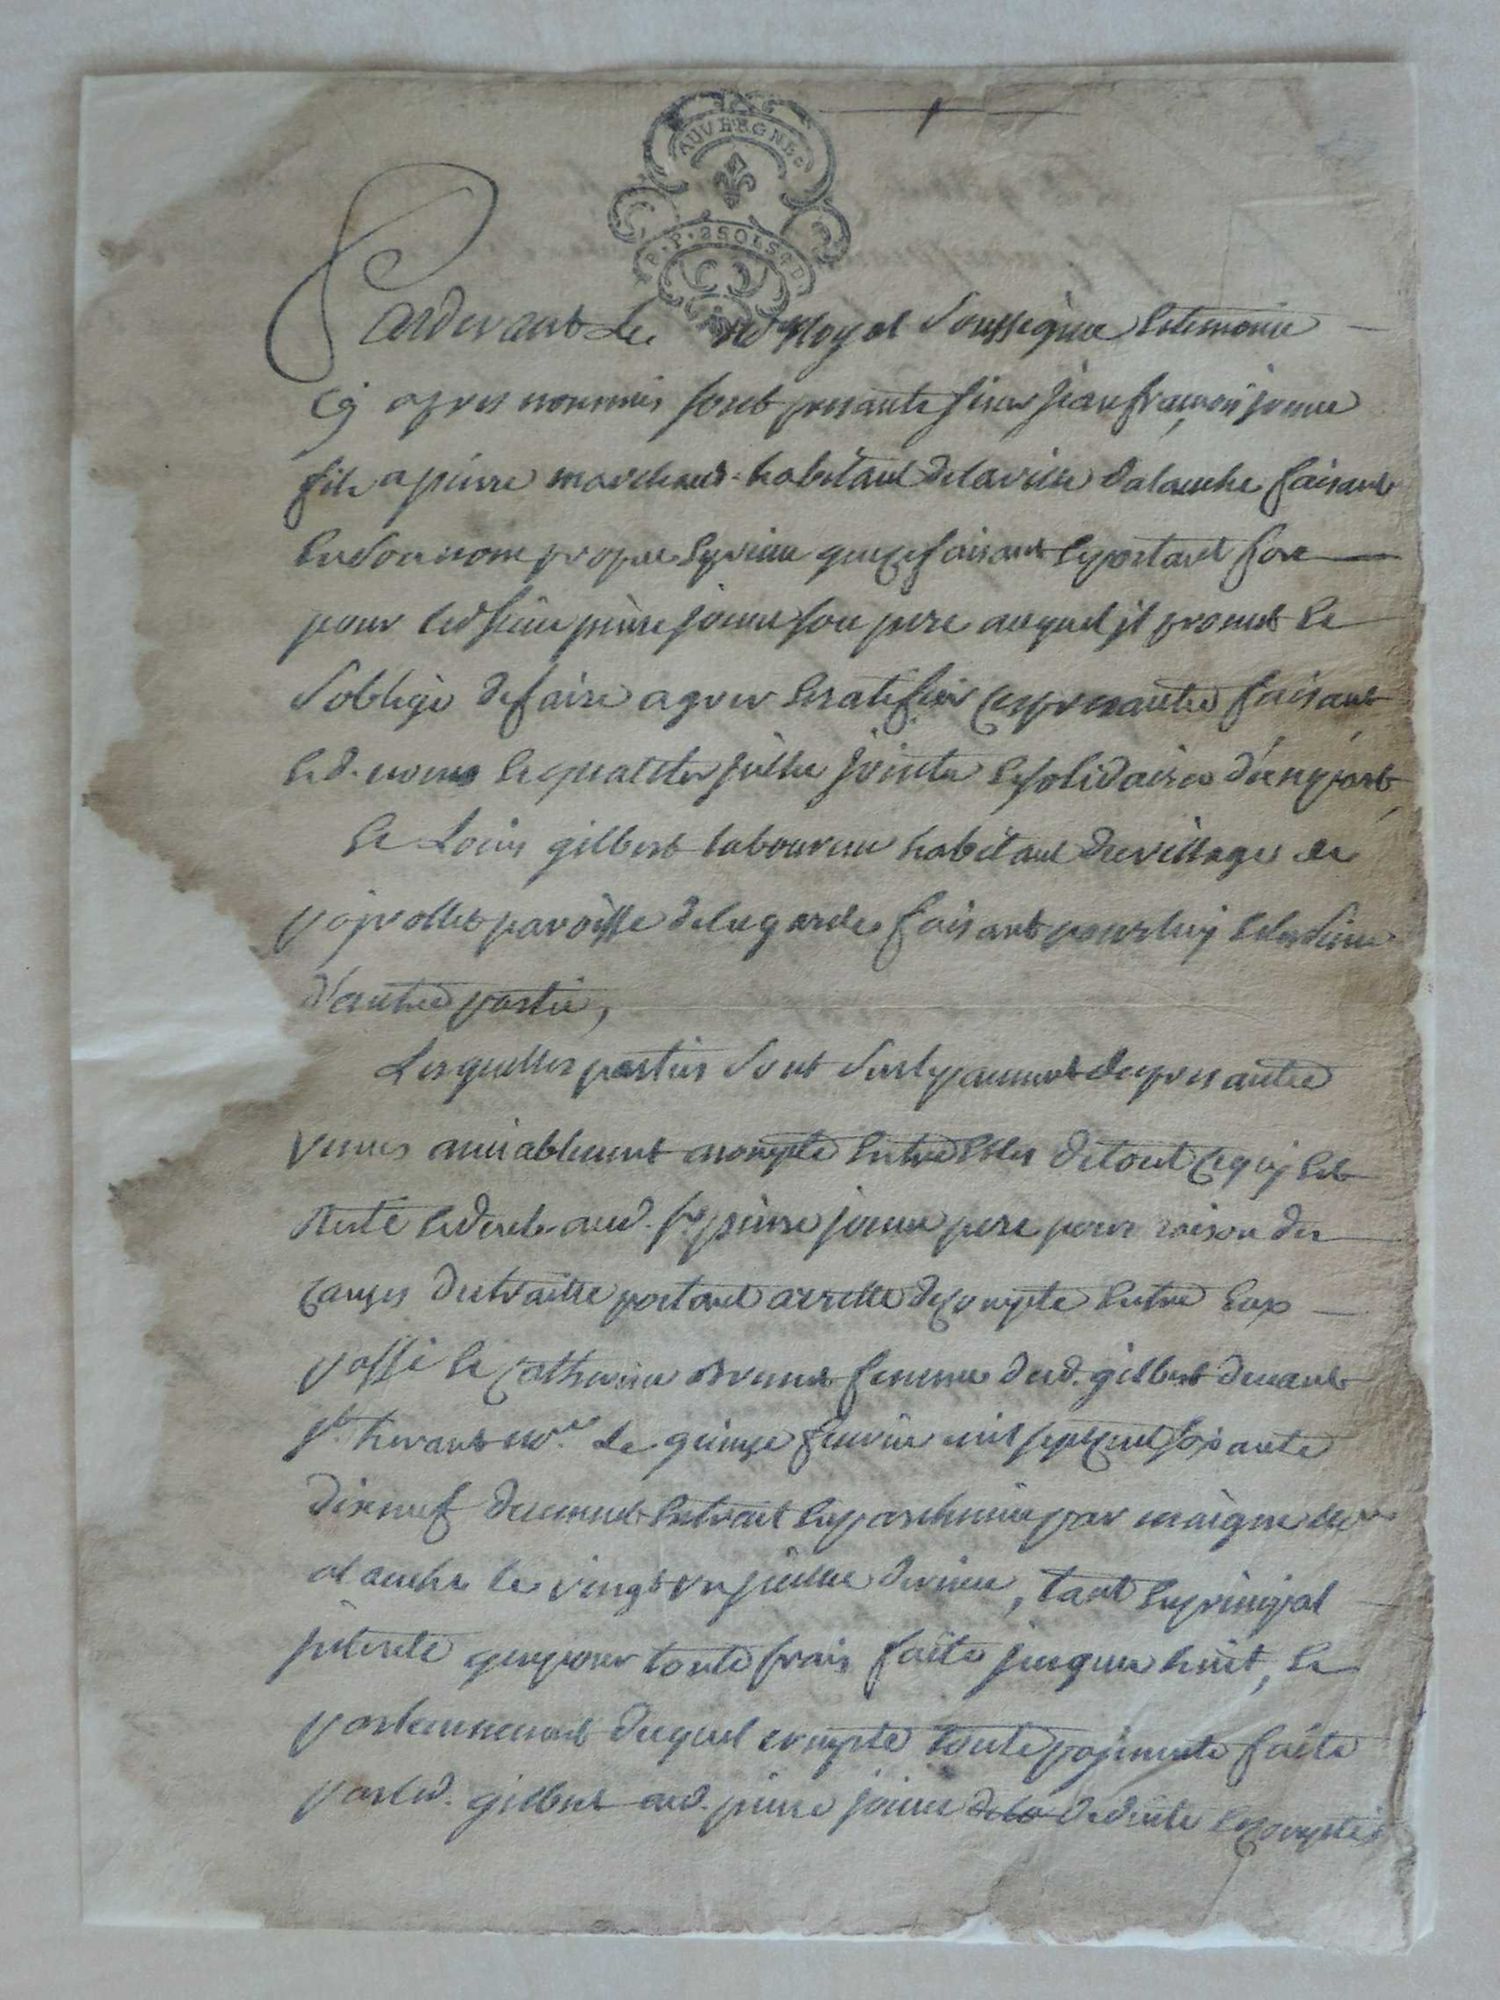 AUVERGNE
P.P. 2 SOLS 4 D.
Pardevant Le no.re Royal Soussigné Et temoins
Cy apres nommés furent presants sieur jean françois jouve
fils a pierre marchand habitant de la ville dalanche faisant
En son nom propre Et privé que Ce faisant Et portant fort
pour led. sieur pierre jouve son pere auquel jl promet Et
S'oblige de faire agreer Et ratiffier Ces presantes faisant
Esd. noms Et qualités jcelles jointes Et solidaires d'une part
Et Louis gilbert laboureur habitant du village de
paroisse de lagarde faisant pour luy Et les siens
d'autre partie,
Lesquelles parties Sont Sur Le payement des presantes
venues amiablement a compte Entre Elles de tout Ce quy Est
Resté Et deub aud. sr. pierre jouve pere pour raison des
Causes du traitté portant arretté de Compte Entre Eux
passé Et Catherine Brunet femme dud. gilbert devant
no.re le quinze fevrier mil sept Cent soixante
dix neuf duement Extrait En parchemin par
alanche le vingt un juillet dernier, tant En prinsipal
jnterets que pour touts frais faits jusques huit, Et
par Le moyent duquel compte touts payements faits
par led. gilbert aud. pierre jouve dela deduits Et Comptés